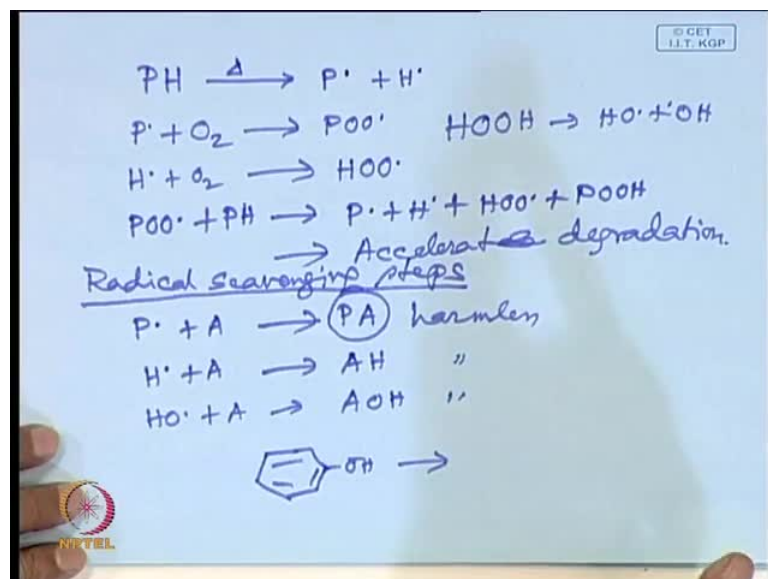 © CET
I.I.T. KGP
PH Δ→ P• + H•
P• + O₂ → POO•   HOOH → HO• + •OH
H• + O₂ → HOO•
POO• + PH → P• + H• + HOO• + POOH
→ Accelerate degradation.
Radical scavenging steps
P• + A → PA harmless
H• + A → AH "
HO• + A → AOH "
OH →
NPTEL